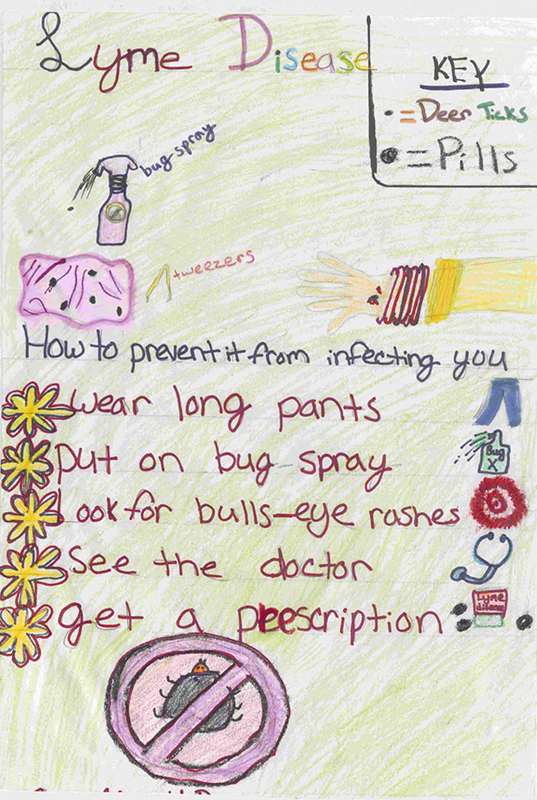 Lyme Disease
KEY
• = Deer Ticks
• = Pills
bug spray
tweezers
How to prevent it from infecting you
wear long pants
put on bug spray
Bug
X
Look for bulls-eye rashes
See the doctor
get a preescription
Lyme
disease